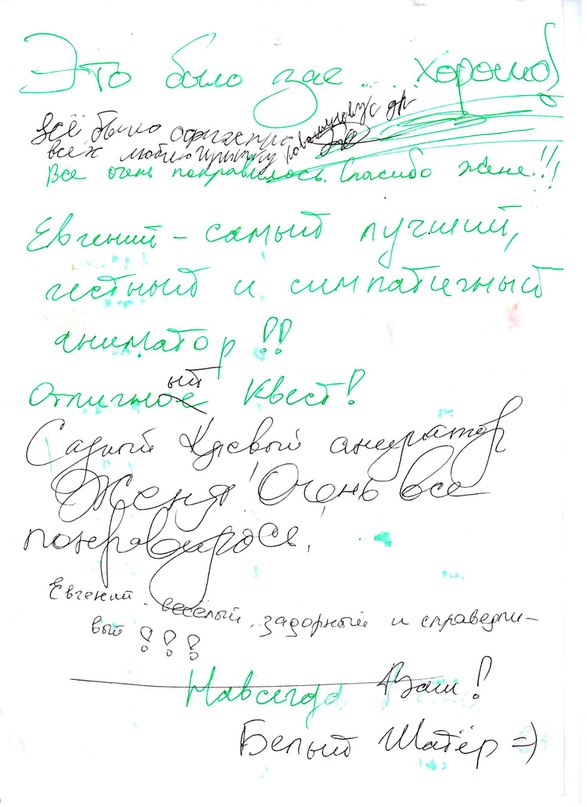 Это было зае... хорошо!
Всё было офигенно
всех люблю
Все очень понравилось. Спасибо жене!!!
Евгений - самый лучший,
честный и симпатичный
аниматор!!
ый
Отличное квест!
Самый клёвый аниматор
Женя! Очень все
понравилось.
Евгений - весёлый, задорный и справедли-
вый!!!
Навсегда Ваш!
Белый Шатёр =)